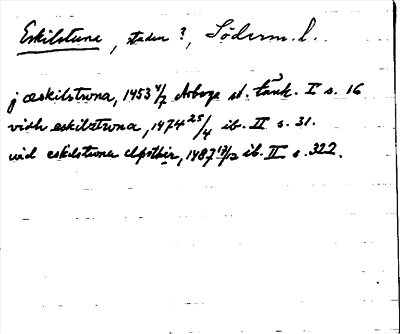 Eskilstuna, staden?, Söderm. l.
j æskilstwna, 1453 4/7 Arboga st. tänk. I s. 16
vidh eskilstwna, 1474 25/4 ib. II s. 31.
wid eskilstwna 1487 17/12 ib. II s. 322.